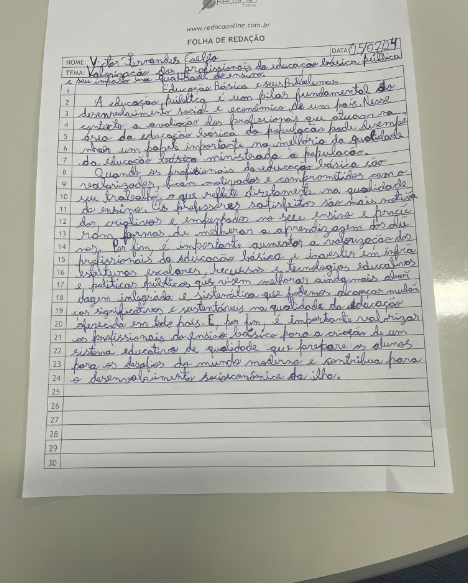 Redação
www.redacaonline.com.br
FOLHA DE REDAÇÃO
NOME: Vitor Fernandes Coelho DATA: 15/02/24
TEMA: Valorização dos profissionais da educação básica pública
e seu impacto na qualidade de ensino.
1 Educação Básica e seus Problemas
2 A educação pública é um pilar fundamental do
3 desenvolvimento social e econômico de um país. Nesse
4 contexto a avaliação dos profissionais que atuam na
5 área da educação básica da população pode desempe
6 nhar um papel importante na melhoria da qualidade
7 da educação básica ministrada a população.
8 Quando os profissionais da educação básica são
9 valorizados, ficam motivados e comprometidos com o
10 seu trabalho, o que reflete diretamente na qualidade
11 do ensino. Os professores satisfeitos são mais motiva
12 dos, criativos e empenhados no seu ensino e procu
13 ram formas de melhorar a aprendizagem dos alu
14 nos. Por fim, é importante aumentar a valorização dos
15 profissionais da educação básica e investir em infra
16 estruturas escolares, recursos e tecnologias educativas
17 e políticas públicas que visem melhorar ainda mais abor
18 dagem integrada e sistemática que podemos alcançar mudan
19 ças significativas e sustentáveis na qualidade da educação
20 oferecida em todo país. E, por fim, é importante valorizar
21 os profissionais do ensino básico para a criação de um
22 sistema educativo de qualidade que prepare os alunos
23 para os desafios do mundo moderno e contribua para
24 o desenvolvimento socioeconômico da ilha.
25
26
27
28
29
30